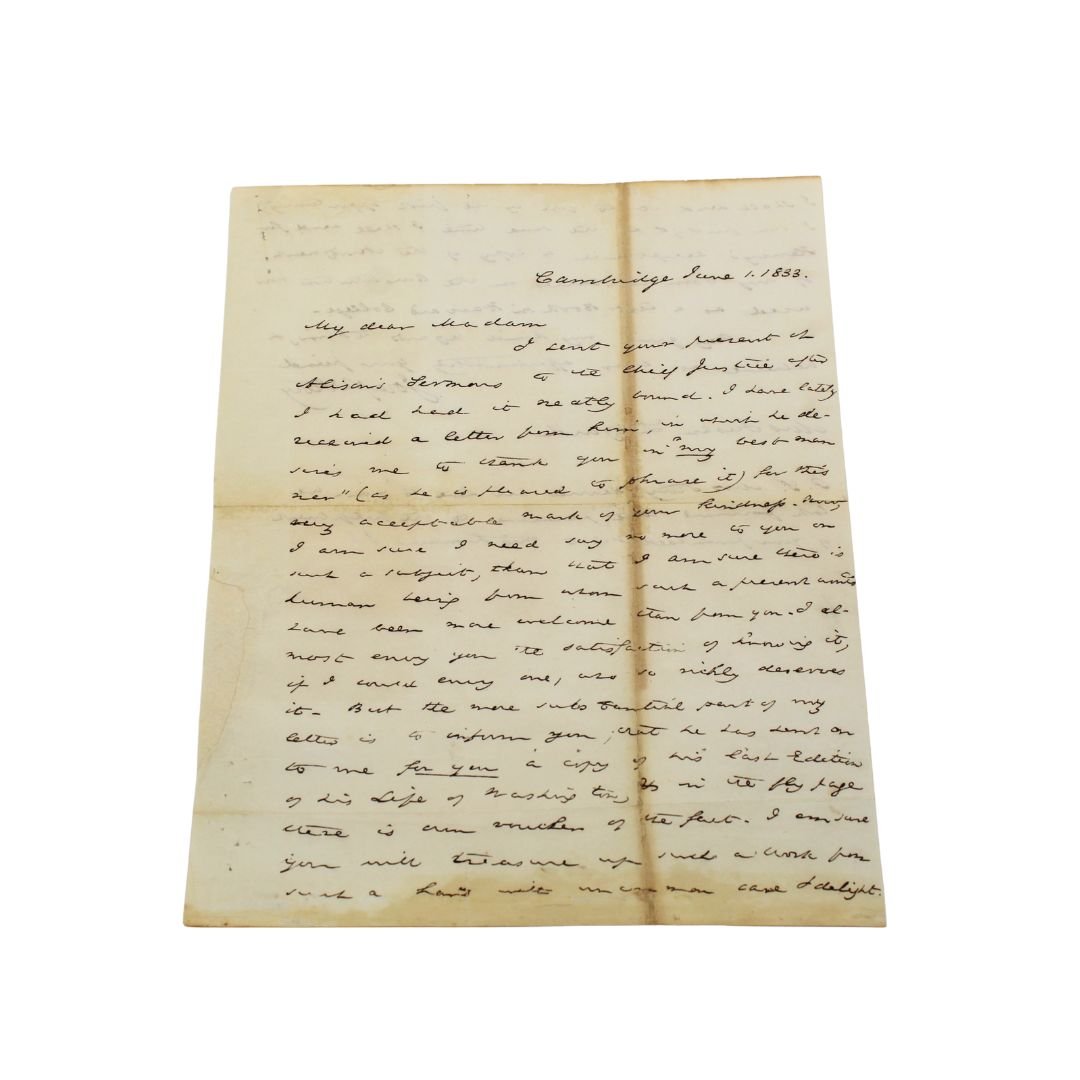 Cambridge June 1. 1833.
My dear Madam
I sent your present of
Alison's Sermons to the Chief Justice after
I had had it neatly bound. I have lately
received a letter from him, in which he de-
sires me to thank you in "my best man
ner" (as he is pleased to phrase it) for this
very acceptable mark of your kindness.
I am sure I need say no more to you on
such a subject, than that I am sure there is
human being from whom such a present would
have been more welcome than from you. I al-
most envy you the satisfaction of knowing it,
if I could envy one, who so richly deserves
it - But the more substantial part of my
letter is to inform you, that he has sent on
to me for you a copy of his last Edition
of his Life of Washington, & in the fly page
there is own voucher of the fact. I am sure
you will treasure up such a work from
such a hand with uncommon care & delight.